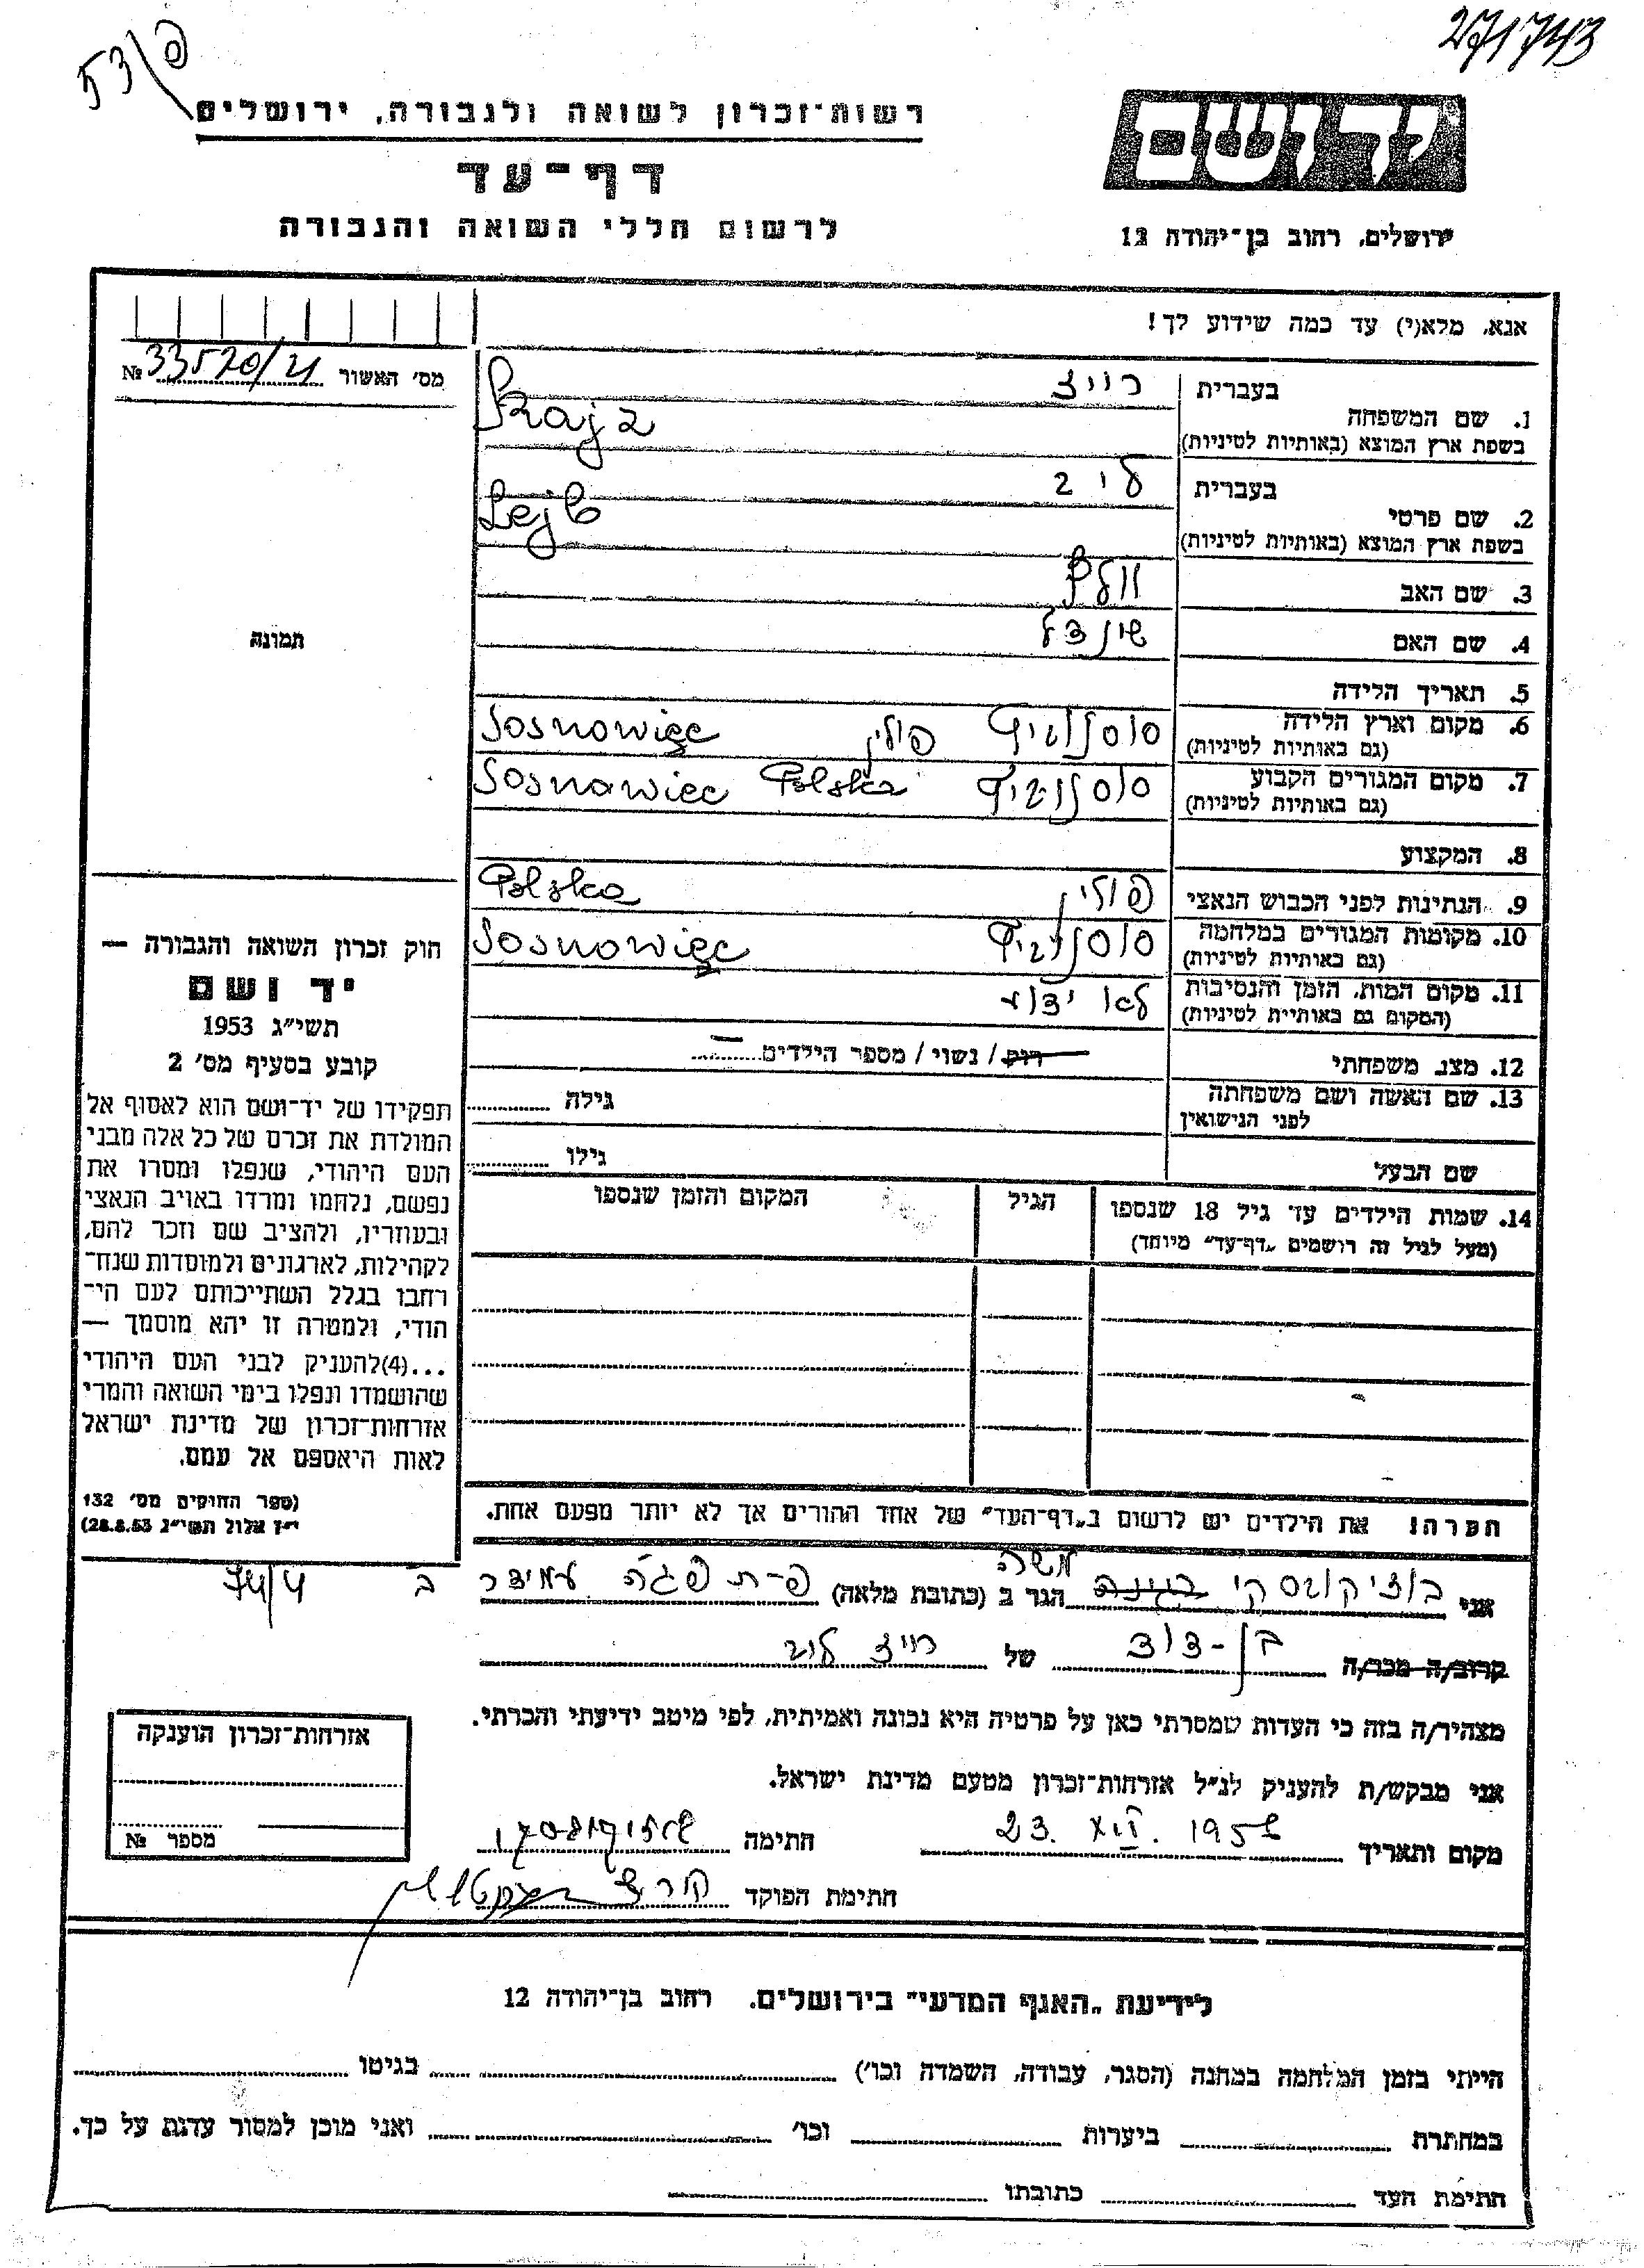 271743
פ/53
רשות־זכרון לשואה ולגבורה, ירושלים
יד ושם
דף־עד
לרשום חללי השואה והגבורה
ירושלים, רחוב בן־יהודה 12
אנא, מלא(י) עד כמה שידוע לך!
מס׳ האשור № 33520/21
בעברית
1. שם המשפחה
בשפת ארץ המוצא (באותיות לטיניות)
רייז
Rajz
בעברית
2. שם פרטי
בשפת ארץ המוצא (באותיות לטיניות)
לייב
Lejb
3. שם האב
וולף
4. שם האם
שיינדל
5. תאריך הלידה
6. מקום וארץ הלידה
(גם באותיות לטיניות)
סוסנוביץ פולין Sosnowiec
7. מקום המגורים הקבוע
(גם באותיות לטיניות)
סוסנוביץ Sosnowiec Polska
8. המקצוע
9. הנתינות לפני הכבוש הנאצי
פולין Polska
10. מקומות המגורים במלחמה
(גם באותיות לטיניות)
סוסנוביץ Sosnowiec
11. מקום המות, הזמן והנסיבות
(המקום גם באותיות לטיניות)
לא ידוע
12. מצב משפחתי
רוק / נשוי / מספר הילדים
13. שם האשה ושם משפחתה
לפני הנישואין
גילה
שם הבעל
גילו
14. שמות הילדים עד גיל 18 שנספו
(מעל לגיל זה רושמים „דף־עד״ מיוחד)
הגיל
המקום והזמן שנספו
תמונה
חוק זכרון השואה והגבורה —
יד ושם
תשי״ג 1953
קובע בסעיף מס׳ 2
תפקידו של יד־ושם הוא לאסוף אל
המולדת את זכרם של כל אלה מבני
העם היהודי, שנפלו ומסרו את
נפשם, נלחמו ומרדו באויב הנאצי
ובעוזריו, ולהציב שם וזכר להם,
לקהילות, לארגונים ולמוסדות שנח־
רחבו בגלל השתייכותם לעם הי־
הודי, ולמטרה זו יהא מוסמך —
...(4)להעניק לבני העם היהודי
שהושמדו ונפלו בימי השואה והמרי
אזרחות־זכרון של מדינת ישראל
לאות היאספם אל עמם.
(ספר החוקים מס׳ 132
י״ז אלול תשי״ג 28.8.53)
הערה! את הילדים יש לרשום ב„דף־העד״ של אחד ההורים אך לא יותר מפעם אחת.
משה
אני בוז'יקובסקי הגר ב (כתובת מלאה) פ-ת פגה עמידר ב 74/4
קרוב/ה מכר/ה בן-דוד של רייז לייב
מצהיר/ה בזה כי העדות שמסרתי כאן על פרטיה היא נכונה ואמיתית, לפי מיטב ידיעתי והכרתי.
אני מבקש/ת להעניק לנ״ל אזרחות־זכרון מטעם מדינת ישראל.
מקום ותאריך 23. XII. 1956 חתימה
חתימת הפוקד
אזרחות־זכרון הוענקה
מספר №
לידיעת „האגף המדעי״ בירושלים. רחוב בן־יהודה 12
הייתי בזמן המלחמה במחנה (הסגר, עבודה, השמדה וכו׳) בגיטו
במחתרת ביערות וכו׳ ואני מוכן למסור עדות על כך.
חתימת העד כתובתו